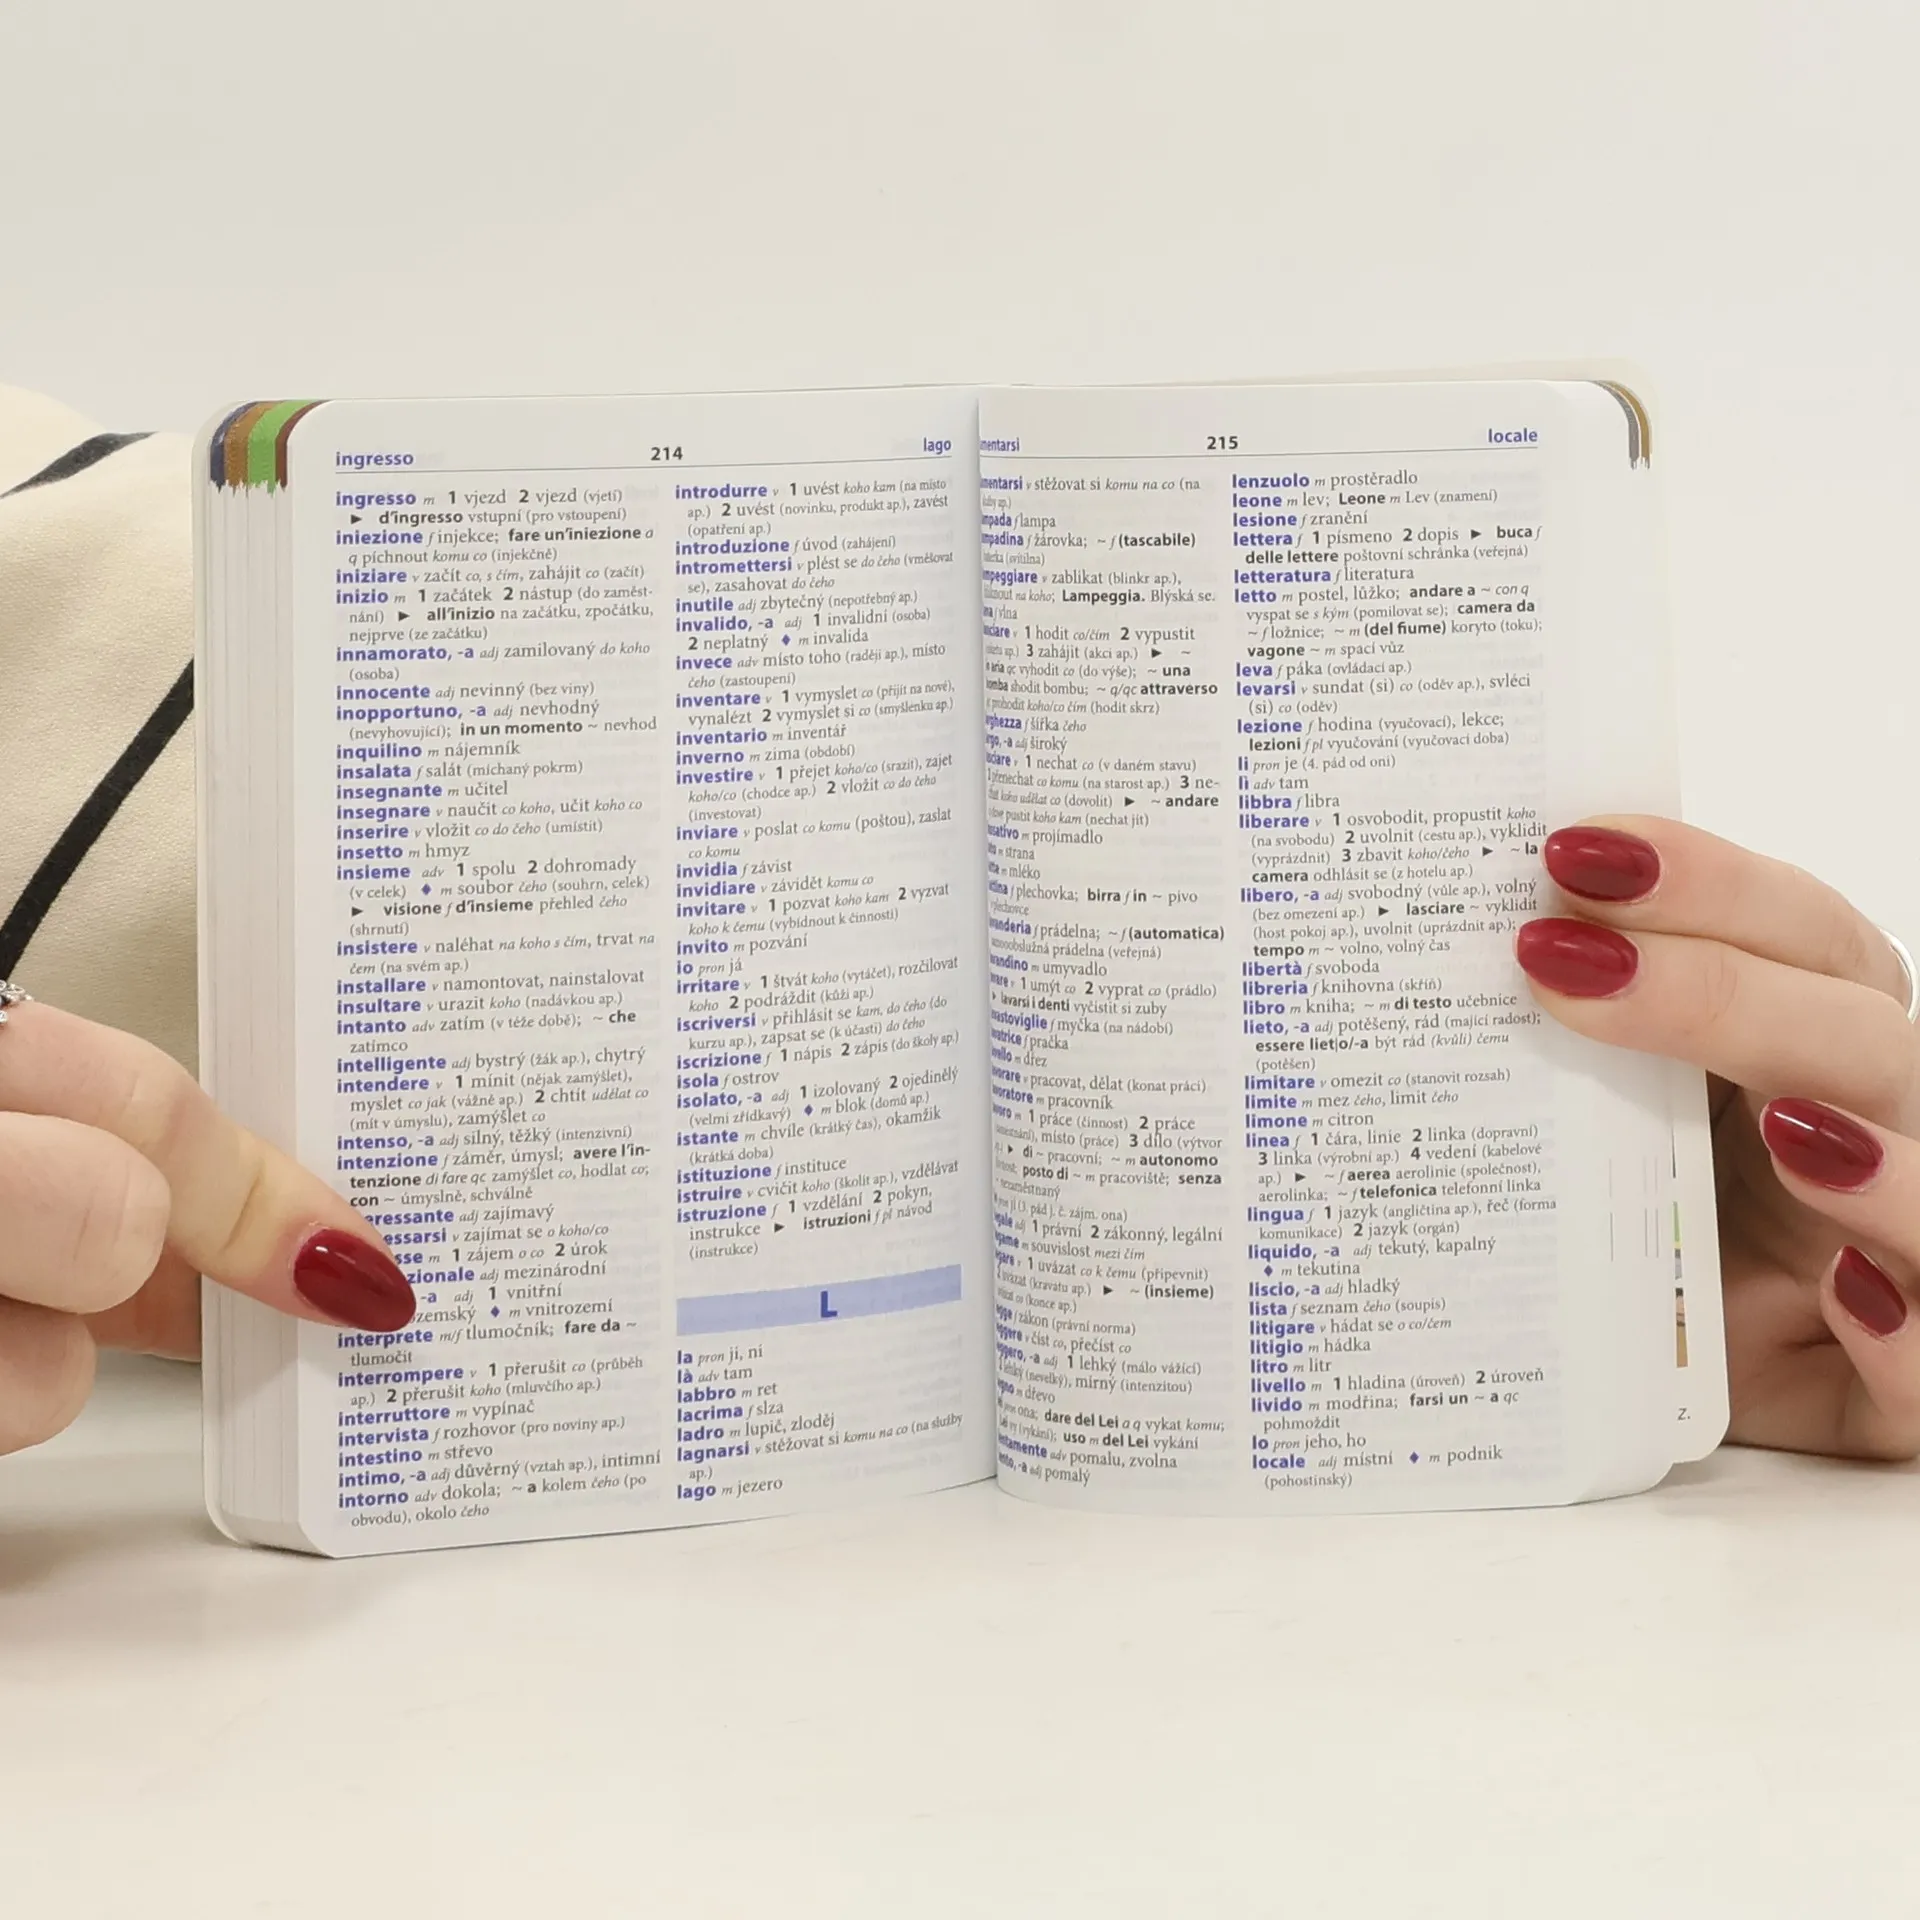 ingresso 214 lago
ingresso m 1 vjezd 2 vjezd (vjetí)
► d'ingresso vstupní (pro vstoupení)
iniezione f injekce; fare un'iniezione a
q píchnout komu co (injekčně)
iniziare v začít co, s čím, zahájit co (začít)
inizio m 1 začátek 2 nástup (do zaměst-
nání) ► all'inizio na začátku, zpočátku,
nejprve (ze začátku)
innamorato, -a adj zamilovaný do koho
(osoba)
innocente adj nevinný (bez viny)
inopportuno, -a adj nevhodný
(nevyhovující); in un momento ~ nevhod
inquilino m nájemník
insalata f salát (míchaný pokrm)
insegnante m učitel
insegnare v naučit co koho, učit koho co
inserire v vložit co do čeho (umístit)
insetto m hmyz
insieme adv 1 spolu 2 dohromady
(v celek) ♦ m soubor čeho (souhrn, celek)
► visione f d'insieme přehled čeho
(shrnutí)
insistere v naléhat na koho s čím, trvat na
čem (na svém ap.)
installare v namontovat, nainstalovat
insultare v urazit koho (nadávkou ap.)
intanto adv zatím (v téže době); ~ che
zatímco
intelligente adj bystrý (žák ap.), chytrý
intendere v 1 mínit (nějak zamýšlet),
myslet co jak (vážně ap.) 2 chtít udělat co
(mít v úmyslu), zamýšlet co
intenso, -a adj silný, těžký (intenzivní)
intenzione f záměr, úmysl; avere l'in-
tenzione di fare qc zamýšlet co, hodlat co;
con ~ úmyslně, schválně
eressante adj zajímavý
essarsi v zajímat se o koho/co
sse m 1 zájem o co 2 úrok
zionale adj mezinárodní
-a adj 1 vnitřní
zemský ♦ m vnitrozemí
interprete m/f tlumočník; fare da ~
tlumočit
interrompere v 1 přerušit co (průběh
ap.) 2 přerušit koho (mluvčího ap.)
interruttore m vypínač
intervista f rozhovor (pro noviny ap.)
intestino m střevo
intimo, -a adj důvěrný (vztah ap.), intimní
intorno adv dokola; ~ a kolem čeho (po
obvodu), okolo čeho
introdurre v 1 uvést koho kam (na místo
ap.) 2 uvést (novinku, produkt ap.), zavést
(opatření ap.)
introduzione f úvod (zahájení)
intromettersi v plést se do čeho (vměšovat
se), zasahovat do čeho
inutile adj zbytečný (nepotřebný ap.)
invalido, -a adj 1 invalidní (osoba)
2 neplatný ♦ m invalida
invece adv místo toho (raději ap.), místo
čeho (zastoupení)
inventare v 1 vymyslet co (přijít na nové),
vynalézt 2 vymyslet si co (smyšlenku ap.)
inventario m inventář
inverno m zima (období)
investire v 1 přejet koho/co (srazit), zajet
koho/co (chodce ap.) 2 vložit co do čeho
(investovat)
inviare v poslat co komu (poštou), zaslat
co komu
invidia f závist
invidiare v závidět komu co
invitare v 1 pozvat koho kam 2 vyzvat
koho k čemu (vybídnout k činnosti)
invito m pozvání
io pron já
irritare v 1 štvát koho (vytáčet), rozčilovat
koho 2 podráždit (kůži ap.)
iscriversi v přihlásit se kam, do čeho (do
kurzu ap.), zapsat se (k účasti) do čeho
iscrizione f 1 nápis 2 zápis (do školy ap.)
isola f ostrov
isolato, -a adj 1 izolovaný 2 ojedinělý
(velmi zřídkavý) ♦ m blok (domů ap.)
istante m chvíle (krátký čas), okamžik
(krátká doba)
istituzione f instituce
istruire v cvičit koho (školit ap.), vzdělávat
istruzione f 1 vzdělání 2 pokyn,
instrukce ► istruzioni f pl návod
(instrukce)
L
la pron ji, ni
là adv tam
labbro m ret
lacrima f slza
ladro m lupič, zloděj
lagnarsi v stěžovat si komu na co (na služby
ap.)
lago m jezero
mentarsi 215 locale
mentarsi v stěžovat si komu na co (na
ap.)
mpada f lampa
mpadina f žárovka; ~ f (tascabile)
(svítilna)
mpeggiare v zablikat (blinkr ap.),
na koho; Lampeggia. Blýská se.
na f vlna
nciare v 1 hodit co/čím 2 vypustit
ap.) 3 zahájit (akci ap.) ► ~
aria qc vyhodit co (do výše); ~ una
bomba shodit bombu; ~ q/qc attraverso
prohodit koho/co čím (hodit skrz)
rghezza f šířka čeho
rgo, -a adj široký
sciare v 1 nechat co (v daném stavu)
přenechat co komu (na starost ap.) 3 ne-
chat koho udělat co (dovolit) ► ~ andare
pustit koho kam (nechat jít)
ssativo m projímadlo
m strana
m mléko
f plechovka; birra f in ~ pivo
plechovce
vanderia f prádelna; ~ f (automatica)
samoobslužná prádelna (veřejná)
vandino m umyvadlo
vare v 1 umýt co 2 vyprat co (prádlo)
► lavarsi i denti vyčistit si zuby
vastoviglie f myčka (na nádobí)
vatrice f pračka
vello m dřez
vorare v pracovat, dělat (konat práci)
voratore m pracovník
voro m 1 práce (činnost) 2 práce
(zaměstnání), místo (práce) 3 dílo (výtvor
► di ~ pracovní; ~ m autonomo
posto di ~ m pracoviště; senza
~ nezaměstnaný
jí (3. pád j. č. zájm. ona)
gale adj 1 právní 2 zákonný, legální
game m souvislost mezi čím
gare v 1 uvázat co k čemu (připevnit)
2 uvázat (kravatu ap.) ► ~ (insieme)
svázat co (konce ap.)
gge f zákon (právní norma)
ggere v číst co, přečíst co
ggero, -a adj 1 lehký (málo vážící)
2 lehký (nevelký), mírný (intenzitou)
gno m dřevo
pron ona; dare del Lei a q vykat komu;
vy (vykání); uso m del Lei vykání
ntamente adv pomalu, zvolna
ento, -a adj pomalý
lenzuolo m prostěradlo
leone m lev; Leone m Lev (znamení)
lesione f zranění
lettera f 1 písmeno 2 dopis ► buca f
delle lettere poštovní schránka (veřejná)
letteratura f literatura
letto m postel, lůžko; andare a ~ con q
vyspat se s kým (pomilovat se); camera da
~ f ložnice; ~ m (del fiume) koryto (toku);
vagone ~ m spací vůz
leva f páka (ovládací ap.)
levarsi v sundat (si) co (oděv ap.), svléci
(si) co (oděv)
lezione f hodina (vyučovací), lekce;
lezioni f pl vyučování (vyučovací doba)
li pron je (4. pád od oni)
lì adv tam
libbra f libra
liberare v 1 osvobodit, propustit koho
(na svobodu) 2 uvolnit (cestu ap.), vyklidit
(vyprázdnit) 3 zbavit koho/čeho ► ~ la
camera odhlásit se (z hotelu ap.)
libero, -a adj svobodný (vůle ap.), volný
(bez omezení ap.) ► lasciare ~ vyklidit
(host pokoj ap.), uvolnit (uprázdnit ap.);
tempo m ~ volno, volný čas
libertà f svoboda
libreria f knihovna (skříň)
libro m kniha; ~ m di testo učebnice
lieto, -a adj potěšený, rád (mající radost);
essere liet|o/-a být rád (kvůli) čemu
(potěšen)
limitare v omezit co (stanovit rozsah)
limite m mez čeho, limit čeho
limone m citron
linea f 1 čára, linie 2 linka (dopravní)
3 linka (výrobní ap.) 4 vedení (kabelové
ap.) ► ~ f aerea aerolinie (společnost),
aerolinka; ~ f telefonica telefonní linka
lingua f 1 jazyk (angličtina ap.), řeč (forma
komunikace) 2 jazyk (orgán)
liquido, -a adj tekutý, kapalný
♦ m tekutina
liscio, -a adj hladký
lista f seznam čeho (soupis)
litigare v hádat se o co/čem
litigio m hádka
litro m litr
livello m 1 hladina (úroveň) 2 úroveň
livido m modřina; farsi un ~ a qc
pohmoždit
lo pron jeho, ho
locale adj místní ♦ m podnik
(pohostinský)
z.